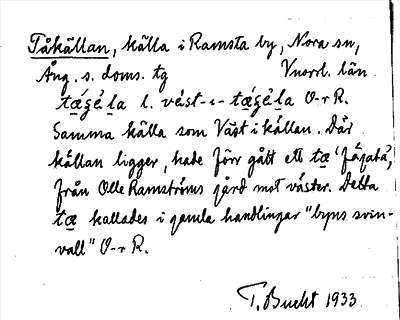 Tåkällan, källa i Ramsta by, Nora sn,
Ång. s. doms. tg Vnorrl. län
tǽgęla l. vést-ı-tǽgęla O-r R.
Samma källa som Väst i källan. Där
källan ligger, hade förr gått ett tæ 'fägata',
från Olle Ramströms gård mot väster. Detta
tæ kallades i gamla handlingar "byns svin-
vall" O-r R.
T. Bucht 1933